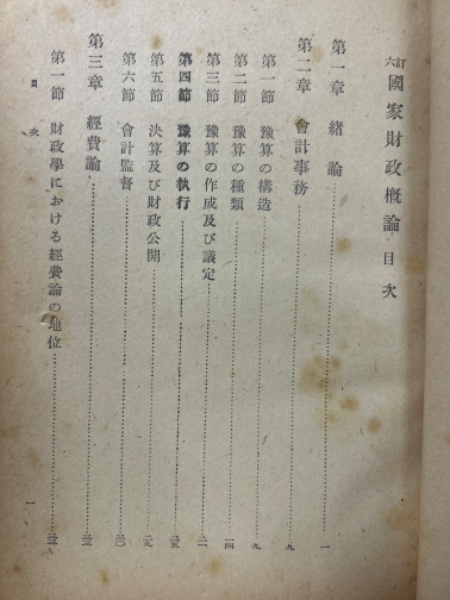 六訂 國家財政概論 目次
第一章 緒論……一
第二章 會計事務……九
第一節 豫算の構造……九
第二節 豫算の種類……一四
第三節 豫算の作成及び議定……二一
第四節 豫算の執行……二五
第五節 決算及び財政公開……二九
第六節 會計監督……三〇
第三章 經費論……三三
第一節 財政學における經費論の地位……三三
目次
一